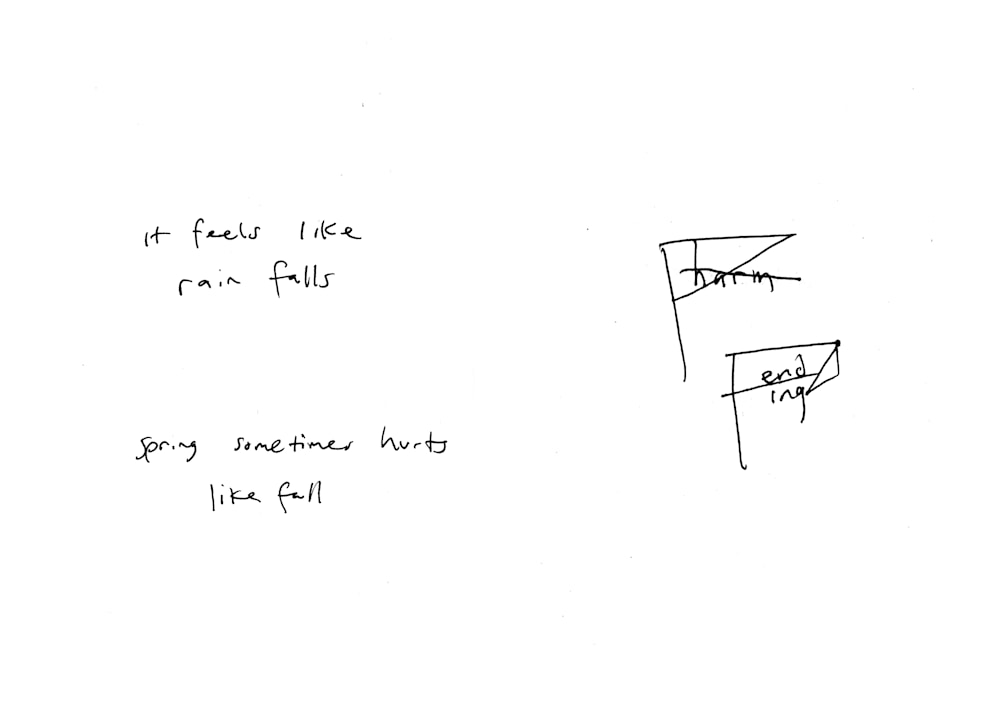 it feels like
rain falls
harm
end
ing
spring sometimes hurts
like fall